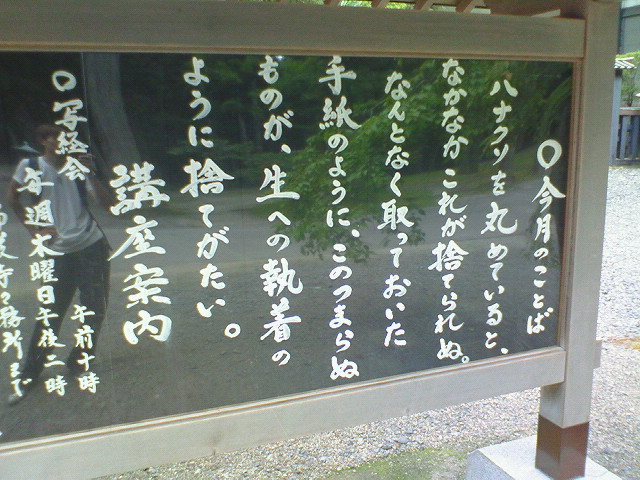 ○今月のことば
ハナクソを丸めていると、
なかなかこれが捨てられぬ。
なんとなく取っておいた
手紙のように、このつまらぬ
ものが、生への執着の
ように捨てがたい。
講座案内
○写経会
午前十時
毎週木曜日午後二時
務所まで